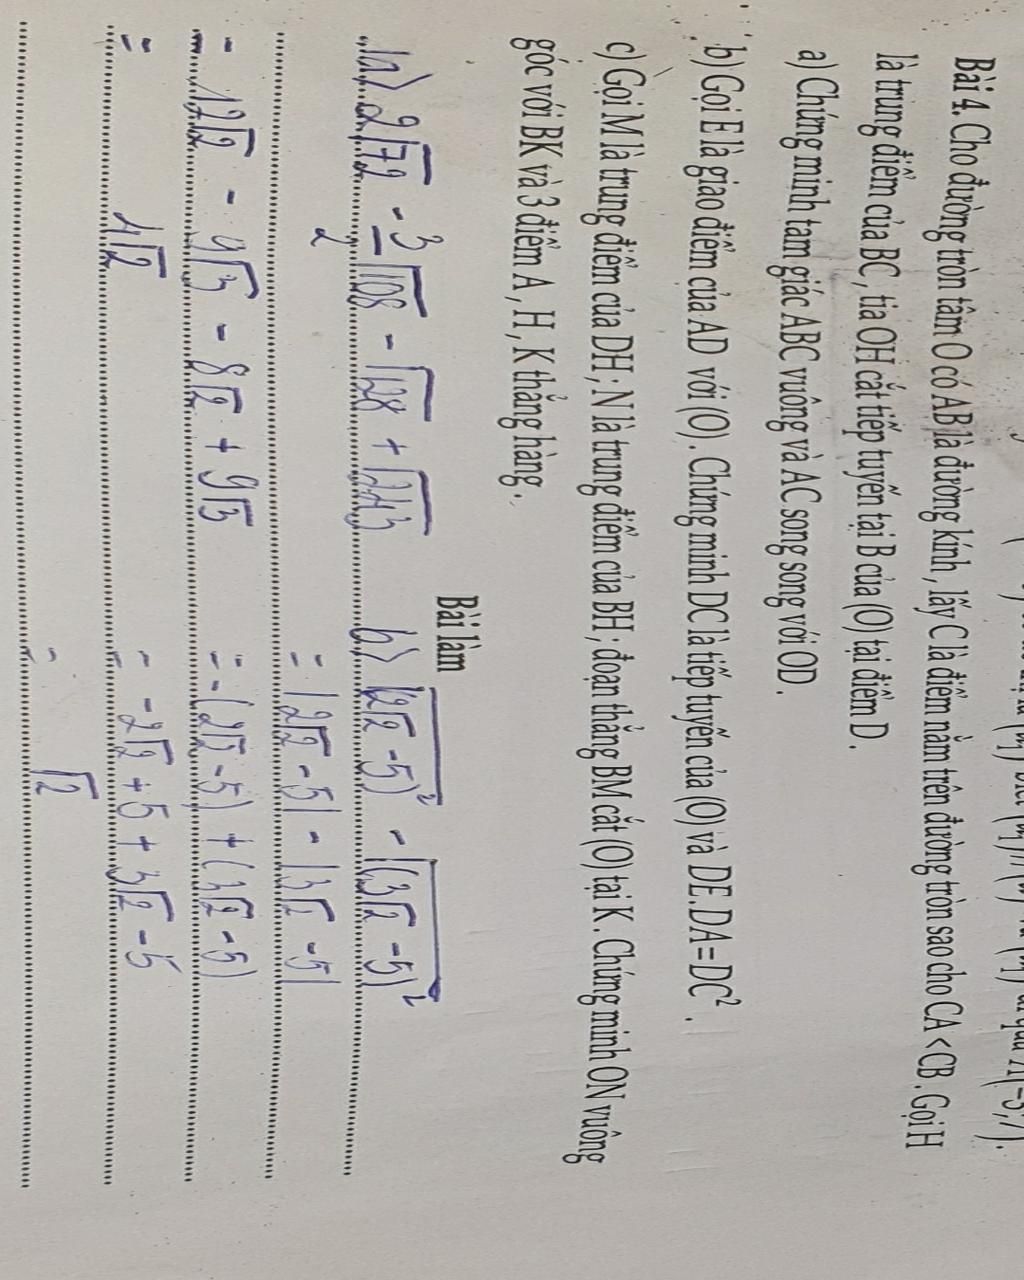 Bài 4. Cho đường tròn tâm O có AB là đường kính, lấy C là điểm nằm trên đường tròn sao cho CA < CB. Gọi H
là trung điểm của BC, tia OH cắt tiếp tuyến tại B của (O) tại điểm D.
a) Chứng minh tam giác ABC vuông và AC song song với OD.
b) Gọi E là giao điểm của AD với (O). Chứng minh DC là tiếp tuyến của (O) và DE.DA = DC².
c) Gọi M là trung điểm của DH; N là trung điểm của BH; đoạn thẳng BM cắt (O) tại K. Chứng minh ON vuông
góc với BK và 3 điểm A, H, K thẳng hàng.
Bài làm
1a) 2√72 - 3/2 √108 - √128 + √243 b) √(2√2 - 5)² - √(3√2 - 5)²
= |2√2 - 5| - |3√2 - 5|
= 12√2 - 9√3 - 8√2 + 9√3 = -(2√2 - 5) + (3√2 - 5)
= 4√2 = -2√2 + 5 + 3√2 - 5
= √2